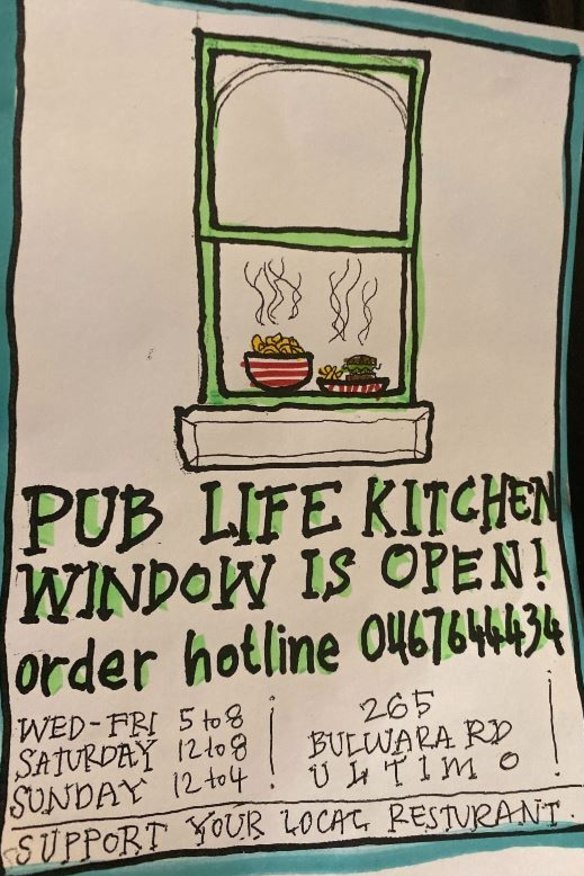 PUB LIFE KITCHEN
WINDOW IS OPEN!
order hotline 0467644434
WED-FRI 5 to 8
SATURDAY 12 to 8
SUNDAY 12 to 4
265
BULWARA RD
ULTIMO
SUPPORT YOUR LOCAL RESTURANT.